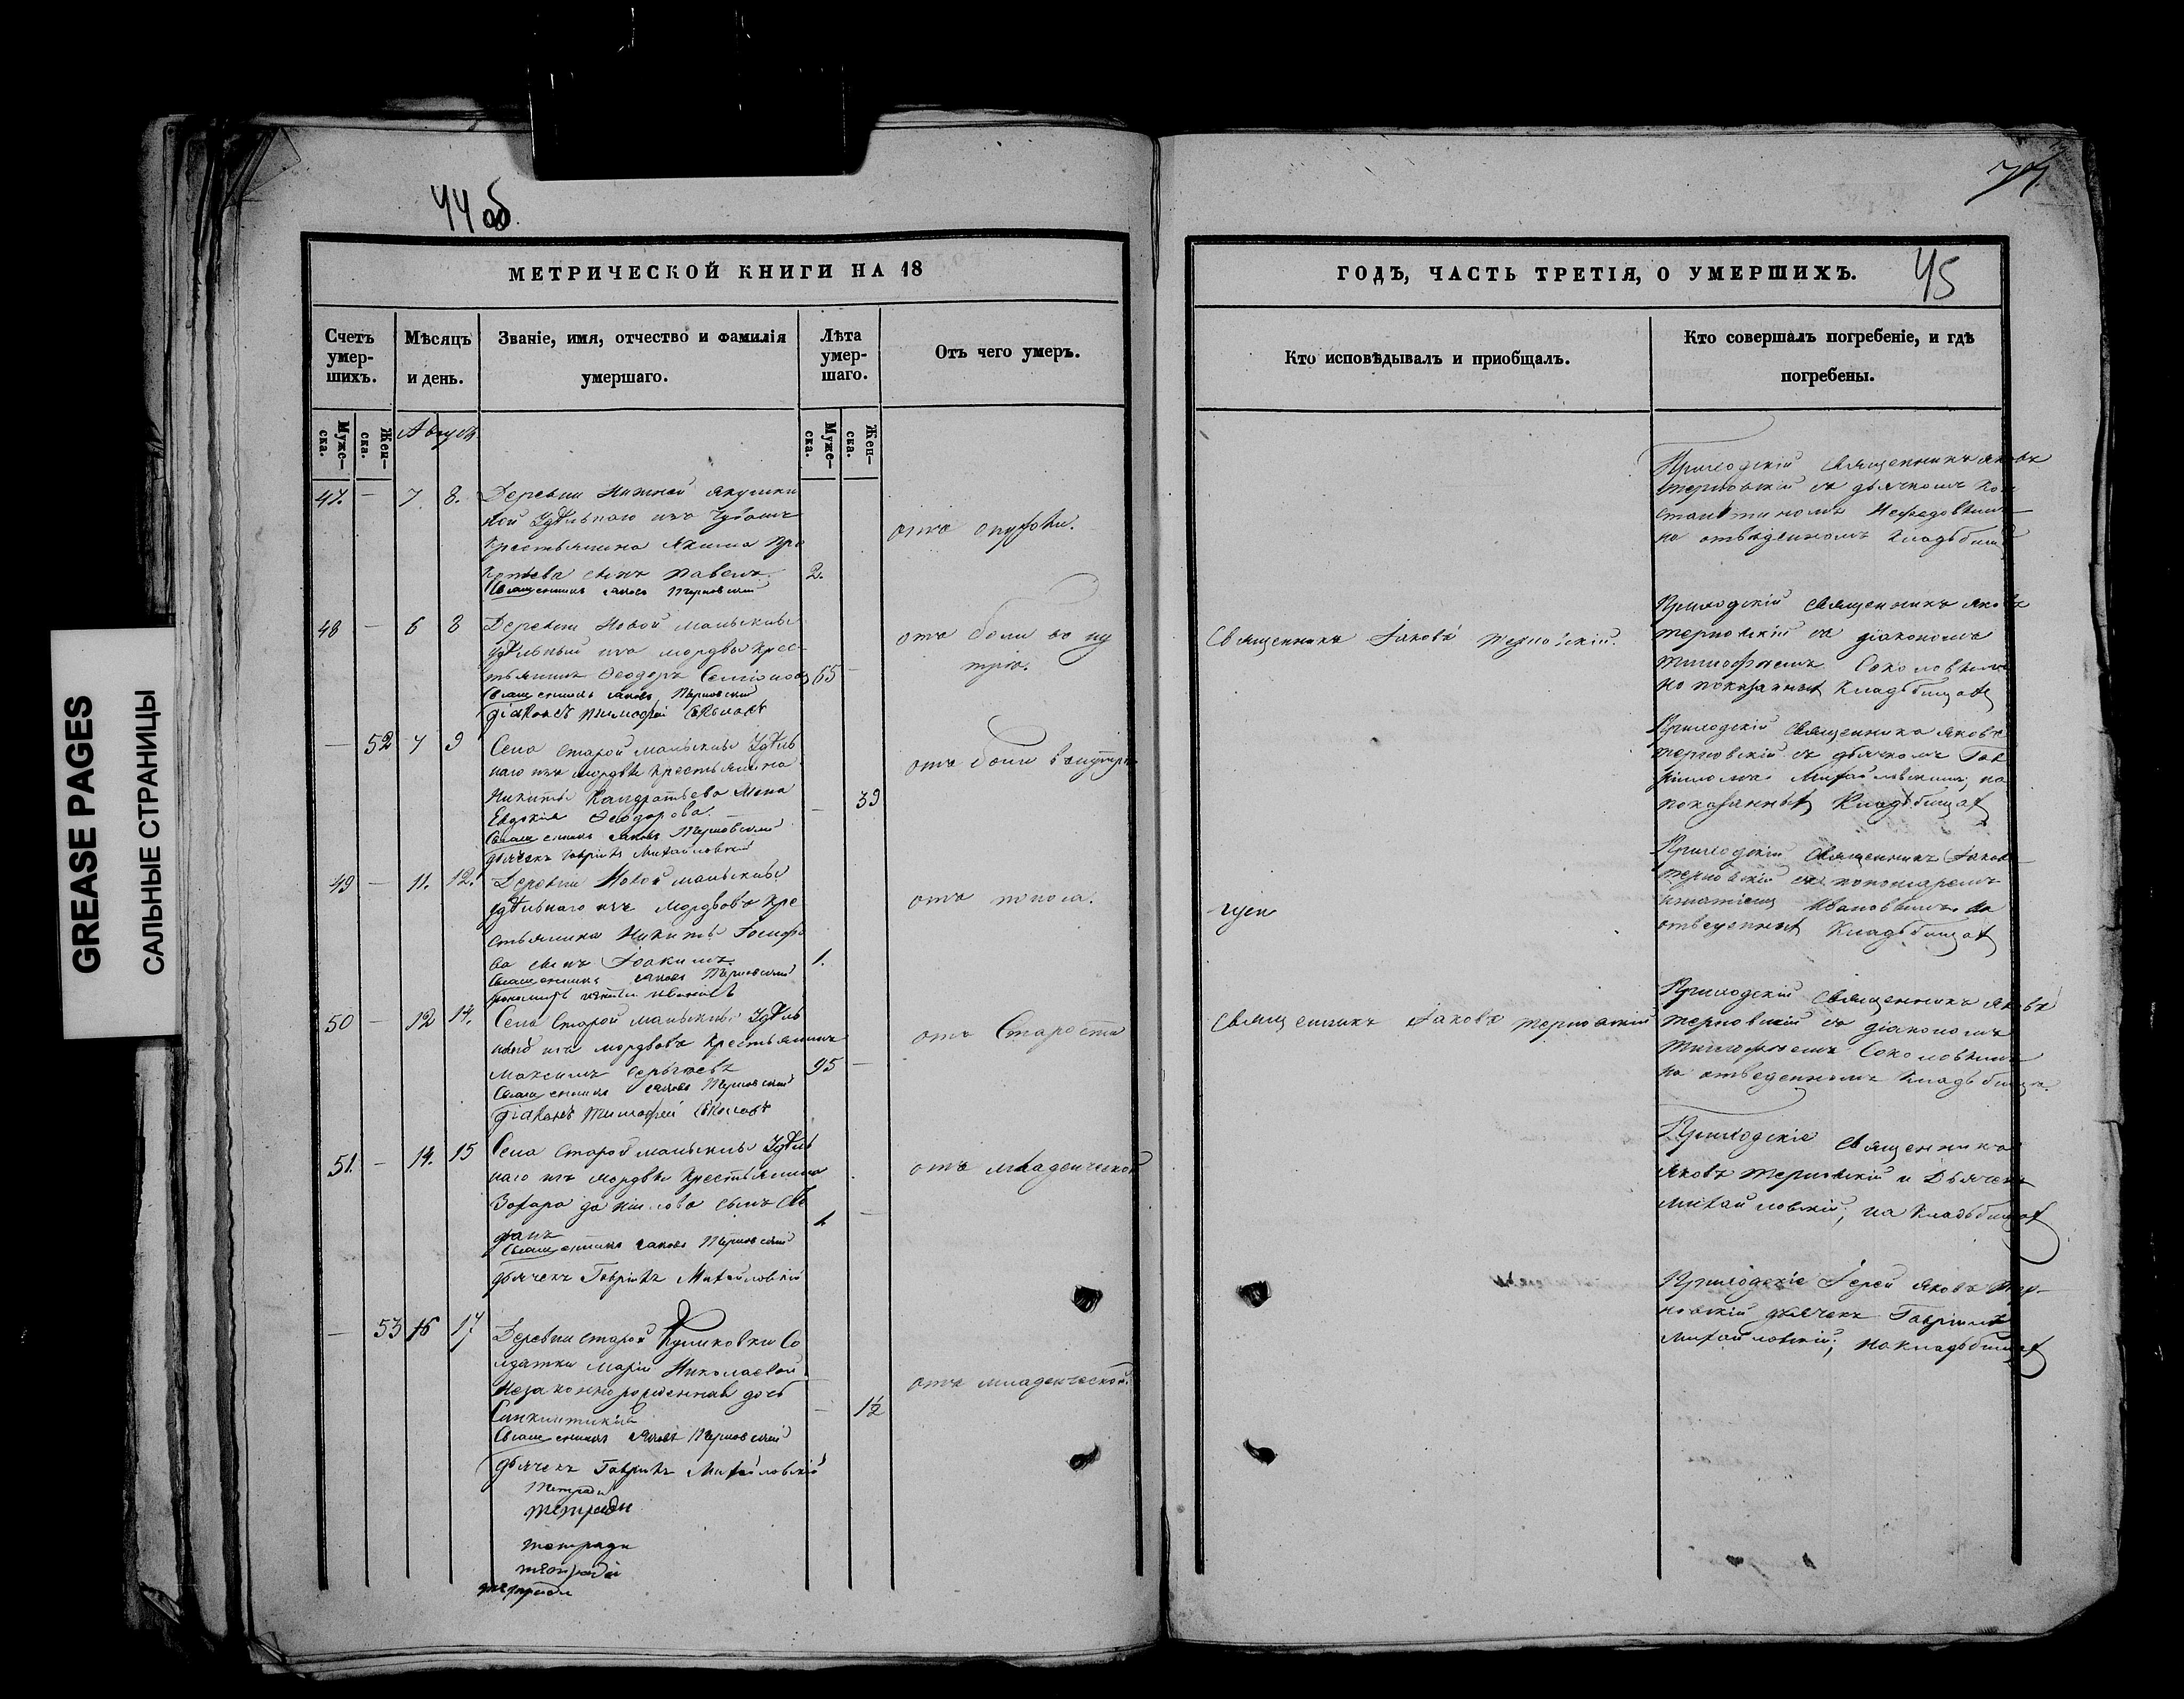 44 об
МЕТРИЧЕСКОЙ КНИГИ НА 18
Счетъ умер-шихъ.
Мѣсяцъ и день.
Званіе, имя, отчество и фамилія умершаго.
Лѣта умер-шаго.
Отъ чего умеръ.
Муже-ска.
Жен-ска.
Августъ
Муже-ска.
Жен-ска.
47. — 7 8. Деревни Нижней Якушки
ной Удѣльнаго изъ Чувашъ
Крестьянина Якима Про
сынъ Павелъ. 2.
Священникъ Іаковъ Терновскій
отъ опухоли.
48 — 6 8 Деревни Новой Маныкиы
удѣльный изъ мордвы крес-
тьянинъ Ѳеодоръ Семіоновъ 65 —
Священникъ Іаковъ Терновскій
діаконъ Тимофей Соколовъ
отъ боли во ну
трѣ.
— 52 7 9 Села Старой Маныкиы Удѣль
наго изъ мордвы Крестьянина
Никиты Кандратьева жена
Евдокія Ѳеодорова. — 39
Священникъ Іаковъ Терновскій
дьячекъ Гавріилъ Михайловскій
отъ боли
49 — 11. 12. Деревни Новой Маныкиы
удѣльнаго изъ Мордвовъ Кре
стьянина Никиты Іосифо
ва сынъ Іоакимъ. 1.
Священникъ Іаковъ Терновскій
отъ поноса.
50 — 12 14. Села Старой Маныкиы Удѣль
ный изъ мордвовъ Крестьянинъ
Максимъ Сергѣевъ 95 —
Священникъ Іаковъ Терновскій
діаконъ Тимофей Соколовъ
отъ Старости
51. — 14. 15 Села Старой Маныкиы Удѣль
наго изъ мордвы Крестьянина
Захара Данилова сынъ Сте
фанъ 1 —
Священникъ Іаковъ Терновскій
дьячекъ Гавріилъ Михайловскій
отъ младенческой
— 53 16 17 Деревни Старой Куликовки Со
лдатки Маріи Николаевой
Незаконнорожденная дочь
Синклитикія — 1/2
Священникъ Іаковъ Терновскій
дьячекъ Гавріилъ Михайловскій
отъ младенческой.
тетради
тетради
тетради
тетради
тетради
ГОДЪ, ЧАСТЬ ТРЕТІЯ, О УМЕРШИХЪ.
45
Кто исповѣдывалъ и пріобщалъ.
Кто совершалъ погребеніе, и гдѣ погребены.
Приходскій Священникъ Яковъ
Терновскій съ дьячкомъ Кон
стантиномъ
на отведенномъ Кладбищѣ
Священникъ Іаковъ Терновскій.
Приходскій Священникъ Яковъ
Терновскій съ діакономъ
Тимофеемъ Соколовымъ
на Кладбищахъ
Приходскій Священникъ Яковъ
Терновскій съ дьячкомъ Гав
рииломъ Михайловскимъ, на
Кладбищахъ
Приходскій Священникъ Іаковъ
Терновскій съ пономаремъ
Ивановымъ на
Кладбищахъ
Священникъ Іаковъ Терновскій
Приходскій Священникъ Яковъ
Терновскій съ діакономъ
Тимофеемъ Соколовымъ
на отведенномъ Кладбищѣ.
Приходскіе Священникъ
Яковъ Терновскій и Дьячекъ
Михайловскій, на Кладбищахъ
Приходскіе Іерей Яковъ Тер-
новскій дьячекъ Гавріилъ
Михайловскій, на Кладбищахъ
GREASE PAGES
САЛЬНЫЕ СТРАНИЦЫ